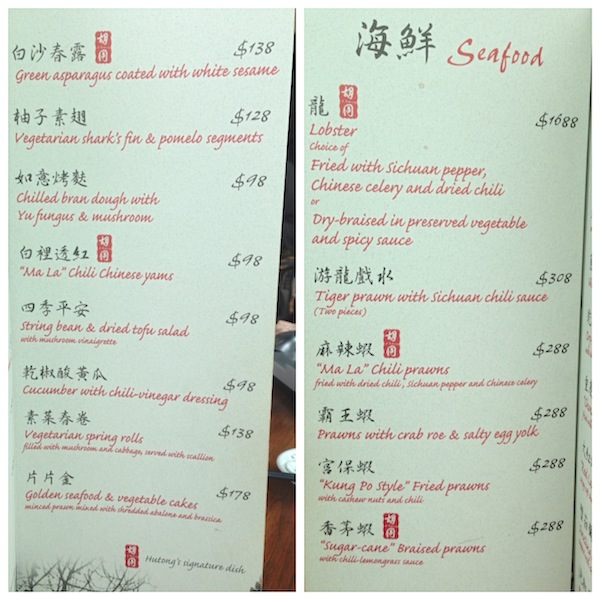 白沙春露 胡同 $138
Green asparagus coated with white sesame
柚子素翅 $128
Vegetarian shark's fin & pomelo segments
如意烤麩 $98
Chilled bran dough with
Yu fungus & mushroom
白裡透紅 胡同 $98
"Ma La" Chili Chinese yams
四季平安 $98
String bean & dried tofu salad
with mushroom vinaigrette
乾椒酸黃瓜 $98
Cucumber with chili-vinegar dressing
素菜春卷 $138
Vegetarian spring rolls
filled with mushroom and cabbage, served with scallion
片片金 $178
Golden seafood & vegetable cakes
minced prawn mixed with shredded abalone and brassica
胡同 Hutong's signature dish
海鮮 Seafood
龍 胡同 $1688
Lobster
Choice of
Fried with Sichuan pepper,
Chinese celery and dried chili
or
Dry-braised in preserved vegetable
and spicy sauce
游龍戲水 $308
Tiger prawn with Sichuan chili sauce
(Two pieces)
麻辣蝦 胡同 $288
"Ma La" Chili prawns
fried with dried chili, Sichuan pepper and Chinese celery
霸王蝦 $288
Prawns with crab roe & salty egg yolk
宮保蝦 $288
"Kung Po Style" Fried prawns
with cashew nuts and chili
香茅蝦 胡同 $288
"Sugar-cane" Braised prawns
with chili-lemongrass sauce